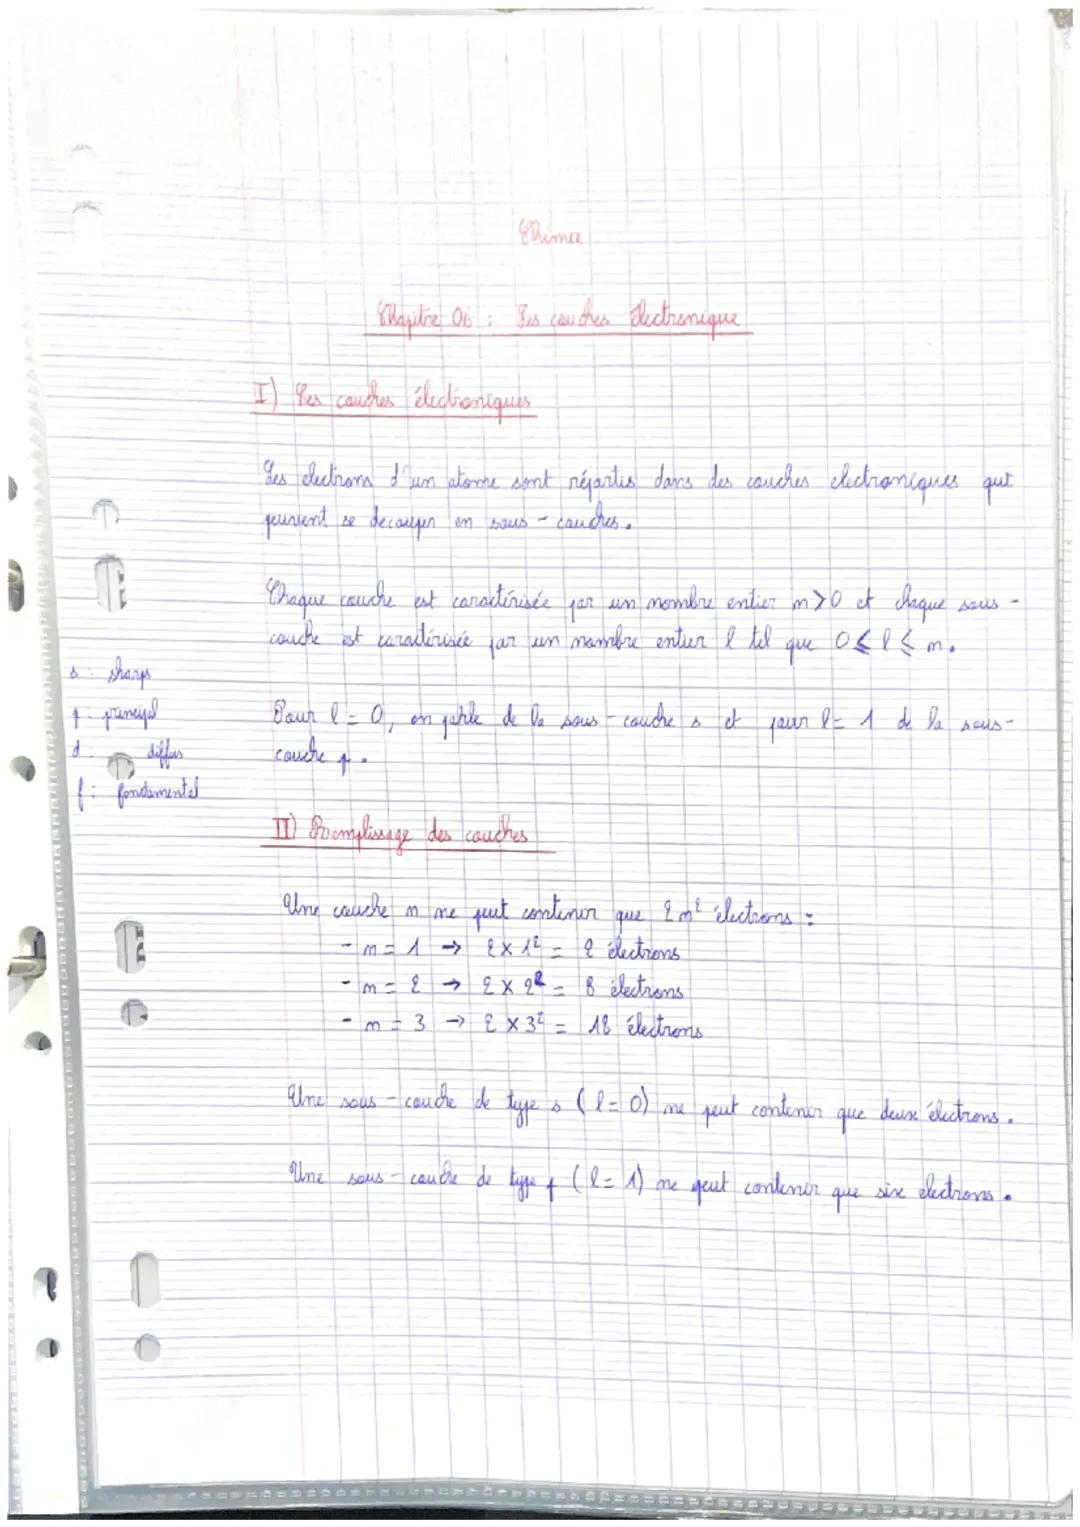 Chimie
Chapitre 06 : Les couches électronique
I) Les couches électroniques
Les electrons d'un atome sont répartis dans des couches electroniques qui
peuvent se decouper en sous-couches.
Chaque couche est caractérisée par un nombre entier n>0 et chaque sous-
couche est caractérisée par un nombre entier l tel que 0 ⩽ l ⩽ n.
s : sharp
p : principal
d : diffus
f : fondamental
Pour l = 0, on parle de la sous-couche s et pour l = 1 de la sous-
couche p.
II) Remplissage des couches
Une couche n ne peut contenir que 2n² électrons :
- n = 1 → 2 x 1² = 2 électrons
- n = 2 → 2 x 2² = 8 électrons
- n = 3 → 2 x 3² = 18 électrons
Une sous-couche de type s (l = 0) ne peut contenir que deux électrons.
Une sous-couche de type p (l = 1) ne peut contenir que six electrons.